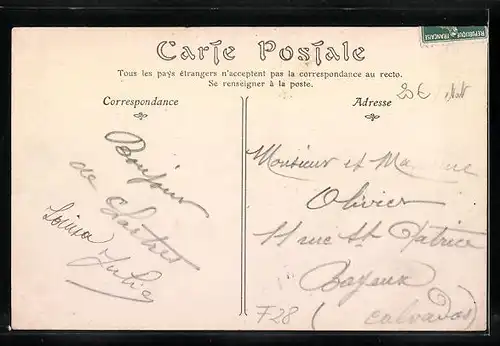 REPUBLIQUE FRANCAISE
Carte Postale
Tous les pays étrangers n'acceptent pas la correspondance au recto.
Se renseigner à la poste.
Correspondance
Bonjour
de Chartres
Louisa Julia
Adresse
25€
Monsieur et Madame
Olivier
11 rue St Patrice
Bayeux
(Calvados)
F28